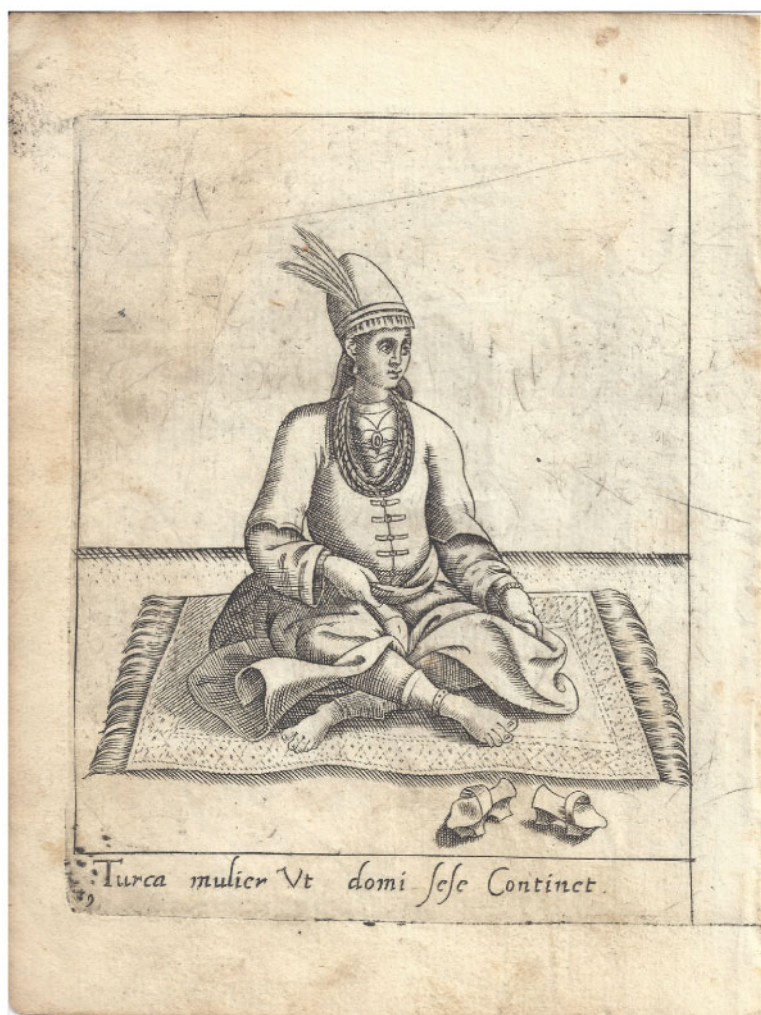 Turca mulier Vt domi sese Continet.
9